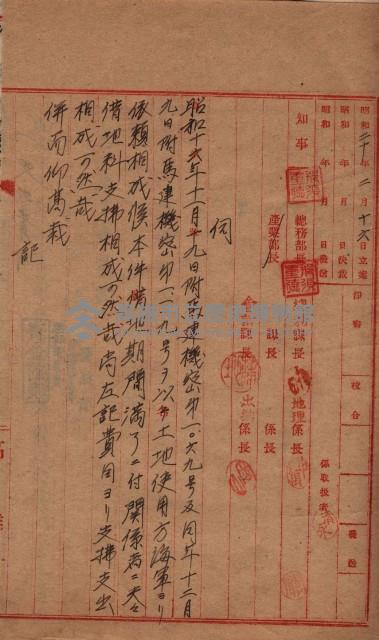 昭和二十年二月十六日立案
昭和 年 月 日決裁
昭和 年 月 日發送
印番
校合
發送
知事
總務部長
產業部長
課長
地理係長
課長
係長
會計課長
出納係長
係取扱者
伺
昭和十六年十一月十九日附馬建機密第一〇六九號及同年十二月
九日附馬建機密第一一一九号ヲ以テ土地使用方海軍ヨリ
依頼相成候本件借地期間滿了ニ付関係者ニ夫々
借地料支拂相成可然哉尚左記費目ヨリ支拂支出
相成可然哉
併而仰高裁
記